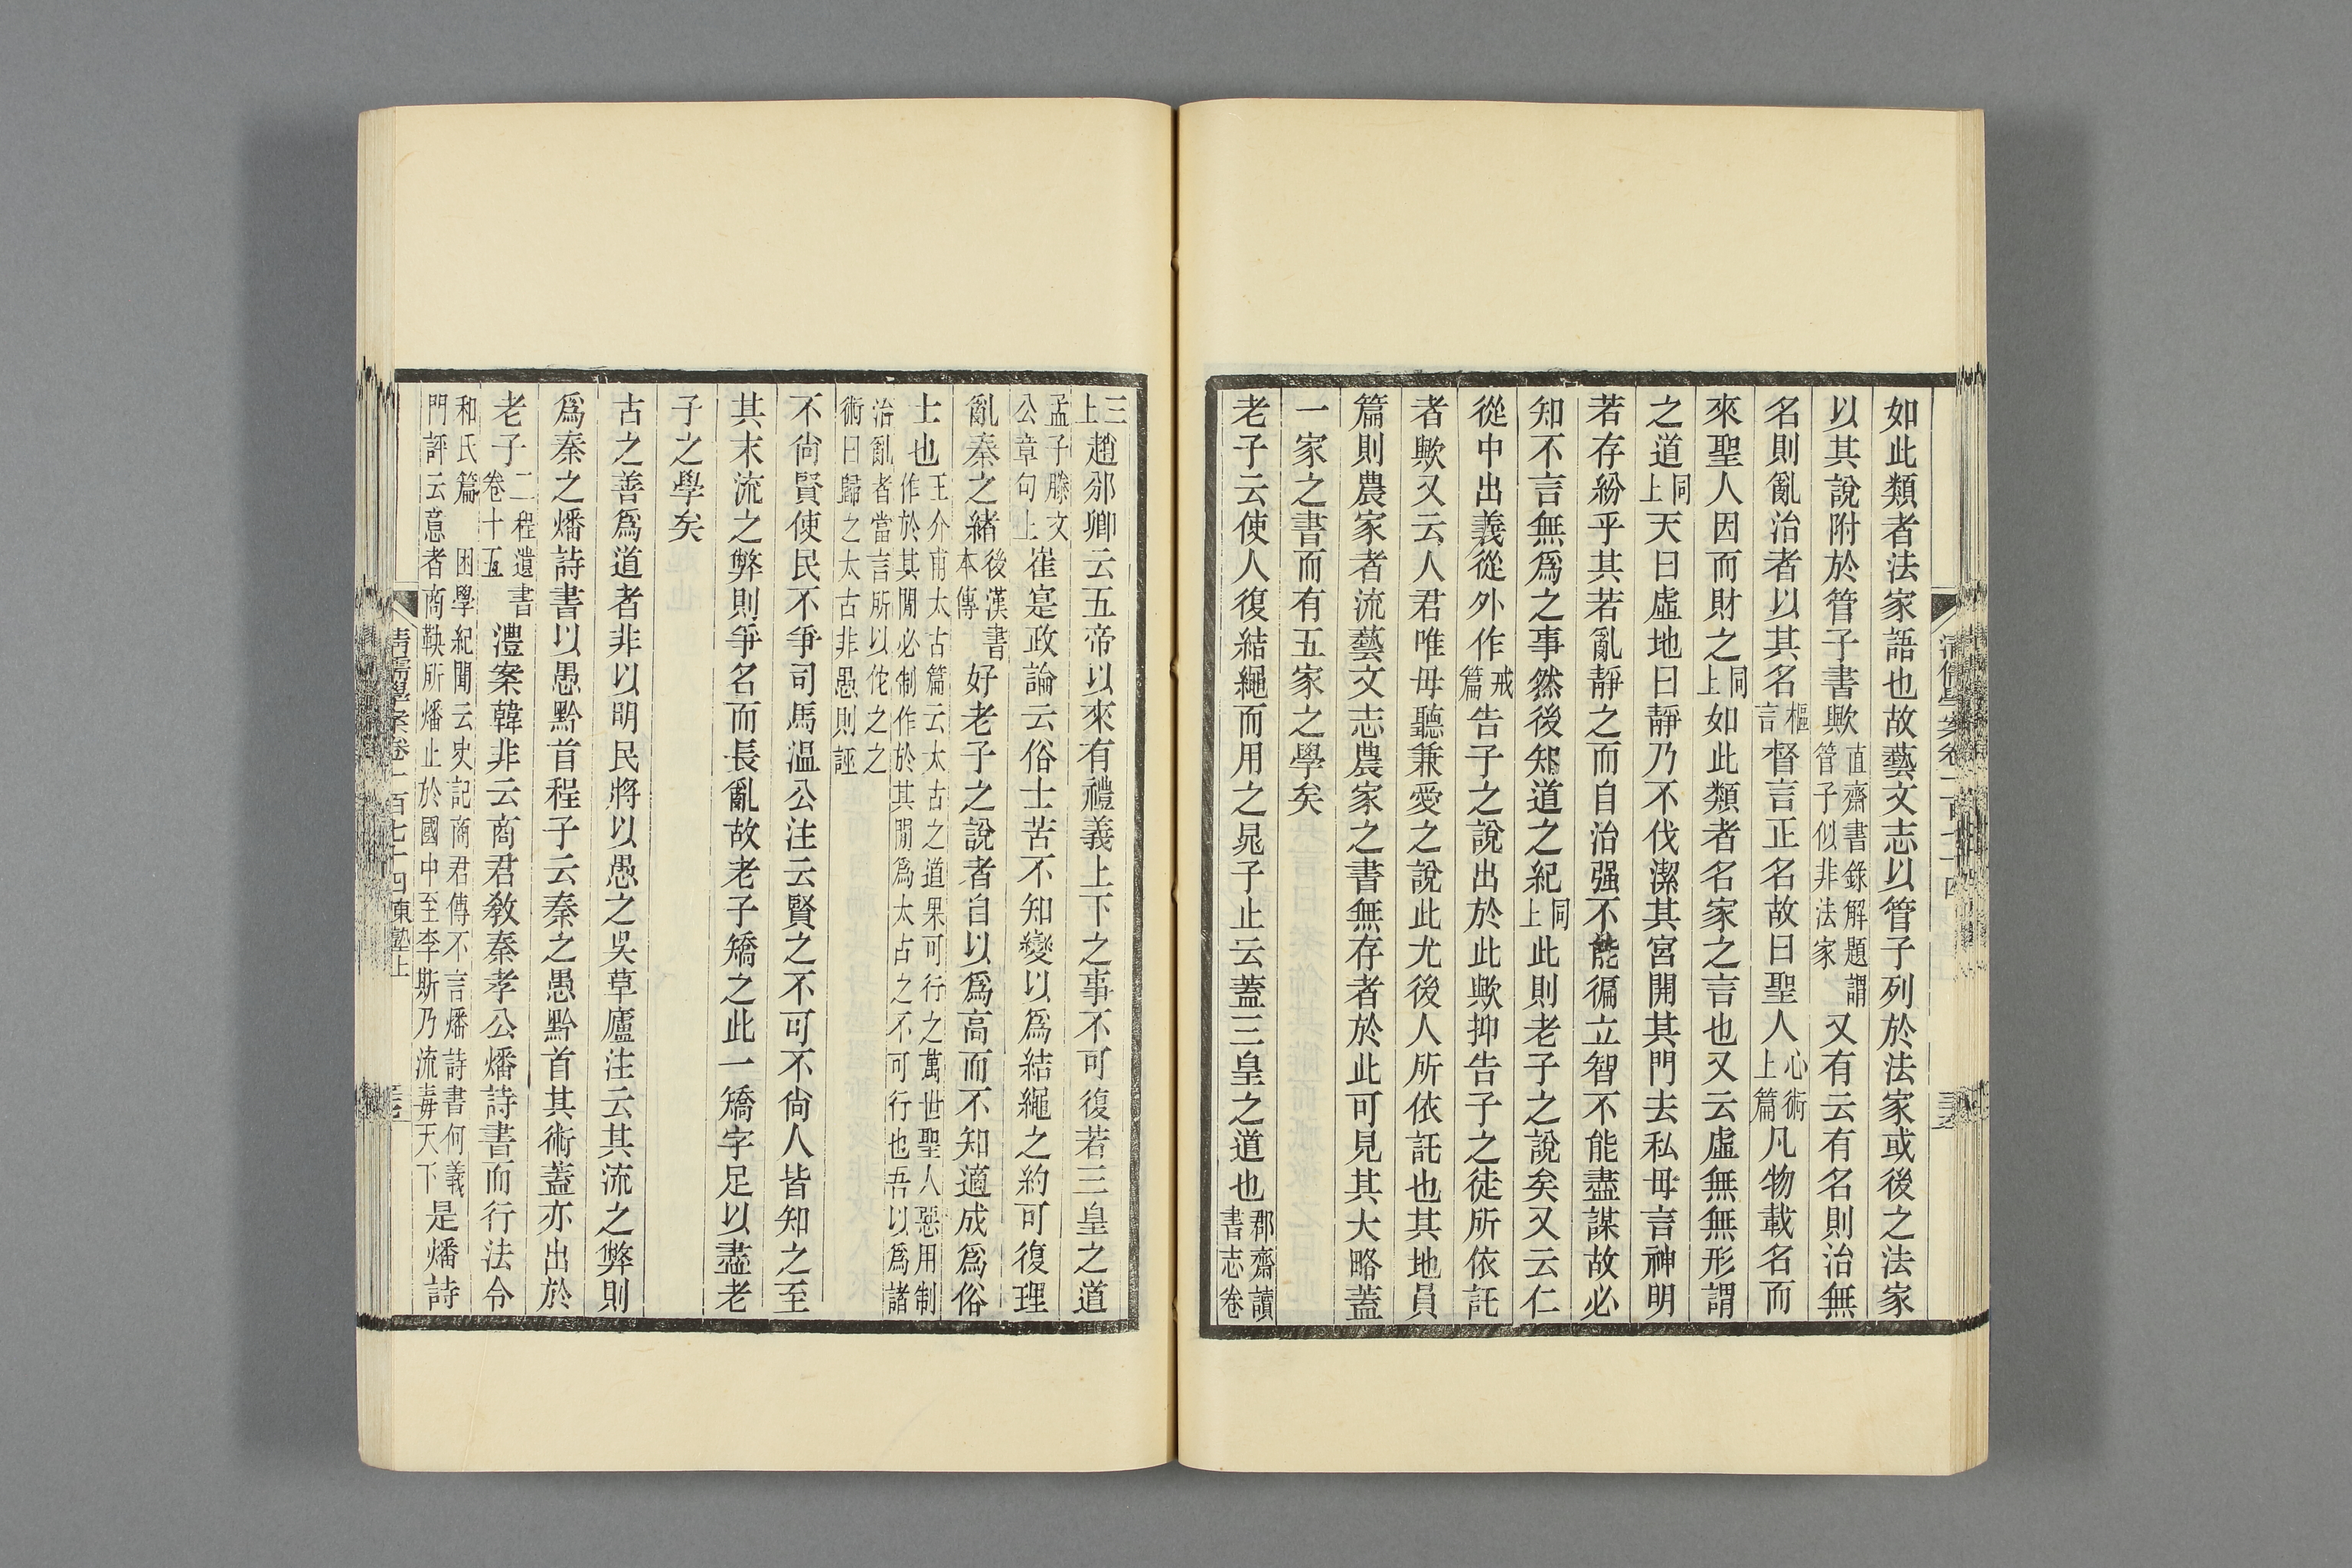 如此類者法家語也故藝文志以管子列於法家或後之法家
以其說附於管子書歟直齋書錄解題謂管子似非法家又有云有名則治無
名則亂治者以其名樞言督言正名故曰聖人心術上篇凡物載名而
來聖人因而財之同上如此類者名家之言也又云虛無無形謂
之道同上天曰虛地曰靜乃不伐潔其宮開其門去私毋言神明
若存紛乎其若亂靜之而自治强不能徧立智不能盡謀故必
知不言無爲之事然後知道之紀同上此則老子之說矣又云仁
從中出義從外作戒篇告子之說出於此歟抑告子之徒所依託
者歟又云人君唯毋聽兼愛之說此尤後人所依託也其地員
篇則農家者流藝文志農家之書無存者於此可見其大略蓋
一家之書而有五家之學矣
老子云使人復結繩而用之晁子止云蓋三皇之道也郡齋讀書志卷
三上趙邠卿云五帝以來有禮義上下之事不可復若三皇之道
孟子滕文公章句上崔寔政論云俗士苦不知變以爲結繩之約可復理
亂秦之緒後漢書本傳好老子之說者自以爲高而不知適成爲俗
士也王介甫太古篇云太古之道果可行之萬世聖人惡用制作於其閒必制作於其閒爲太古之不可行也吾以爲諸
治亂者當言所以佗之之術曰歸之太古非愚則誣
不尙賢使民不爭司馬溫公注云賢之不可不尙人皆知之至
其末流之弊則爭名而長亂故老子矯之此一矯字足以盡老
子之學矣
古之善爲道者非以明民將以愚之吳草廬注云其流之弊則
爲秦之燔詩書以愚黔首程子云秦之愚黔首其術蓋亦出於
老子二程遺書卷十五澧案韓非云商君敎秦孝公燔詩書而行法令
和氏篇困學紀聞云史記商君傳不言燔詩書何義門評云意者商鞅所燔止於國中至李斯乃流毒天下是燔詩
清儒學案卷一百七十四東塾上